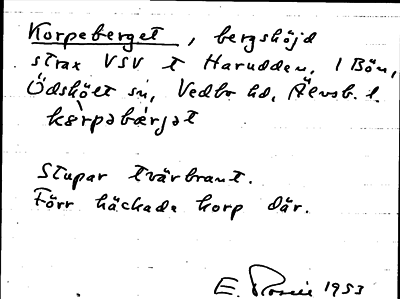 Korpeberget, bergshöjd
strax VSV t Harudden, 1 Bön,
Ödskölt sn, Vedbo hd, Älvsb. l.
kòrpəbæ̀rjət
Stupar tvärbrant.
Förr häckade korp där.
E. 1953